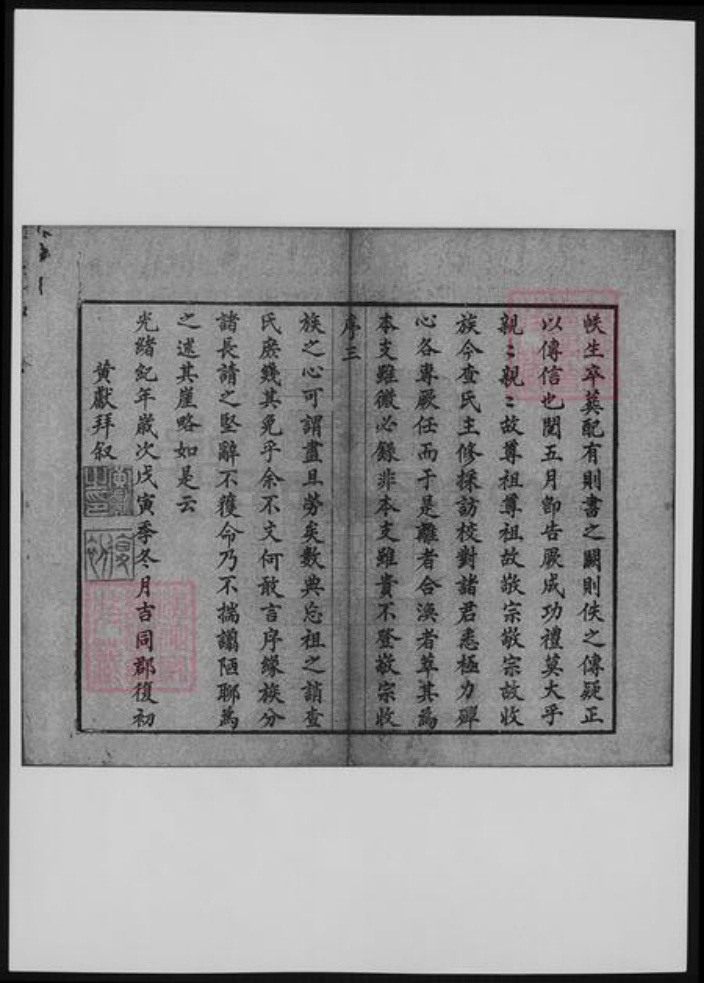 帙生卒葬配有則書之闕則佚之傳疑正
以傳信也閱五月卽告厥成功禮莫大乎
親〻親〻故尊祖尊祖故敬宗敬宗故收
族今查氏主修採訪校對諸君悉極力殫
心各專厥任而于是離者合渙者萃其爲
本支雖微必錄非本支雖貴不登敬宗收
序三
族之心可謂盡且勞矣數典忘祖之誚查
氏庶幾其免乎余不文何敢言序緣族分
諸長請之堅辭不獲命乃不揣譾陋聊爲
之述其崖略如是云
光緒紀年歲次戊寅季冬月吉同郡復初
黄獻拜叙